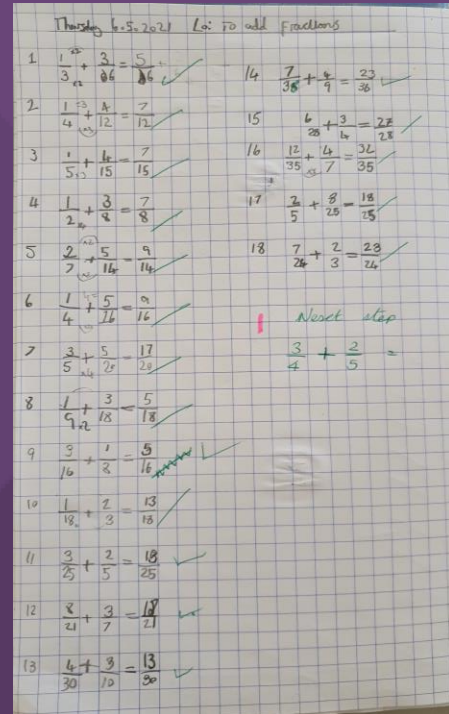 Thursday 6.5.2021 Lo: To add fractions
1 1/3 + 3/6 = 5/6
2 1/4 + 4/12 = 7/12
3 1/5 + 4/15 = 7/15
4 1/2 + 3/8 = 7/8
5 2/7 + 5/14 = 9/14
6 1/4 + 5/16 = 9/16
7 3/5 + 5/20 = 17/20
8 1/9 + 3/18 = 5/18
9 3/16 + 1/8 = 5/16
10 1/18 + 2/3 = 13/18
11 3/25 + 2/5 = 13/25
12 8/21 + 3/7 = 17/21
13 4/30 + 3/10 = 13/30
14 7/36 + 4/9 = 23/36
15 6/28 + 3/4 = 27/28
16 12/35 + 4/7 = 32/35
17 2/5 + 8/25 = 18/25
18 7/24 + 2/3 = 23/24
Next step
3/4 + 2/5 =